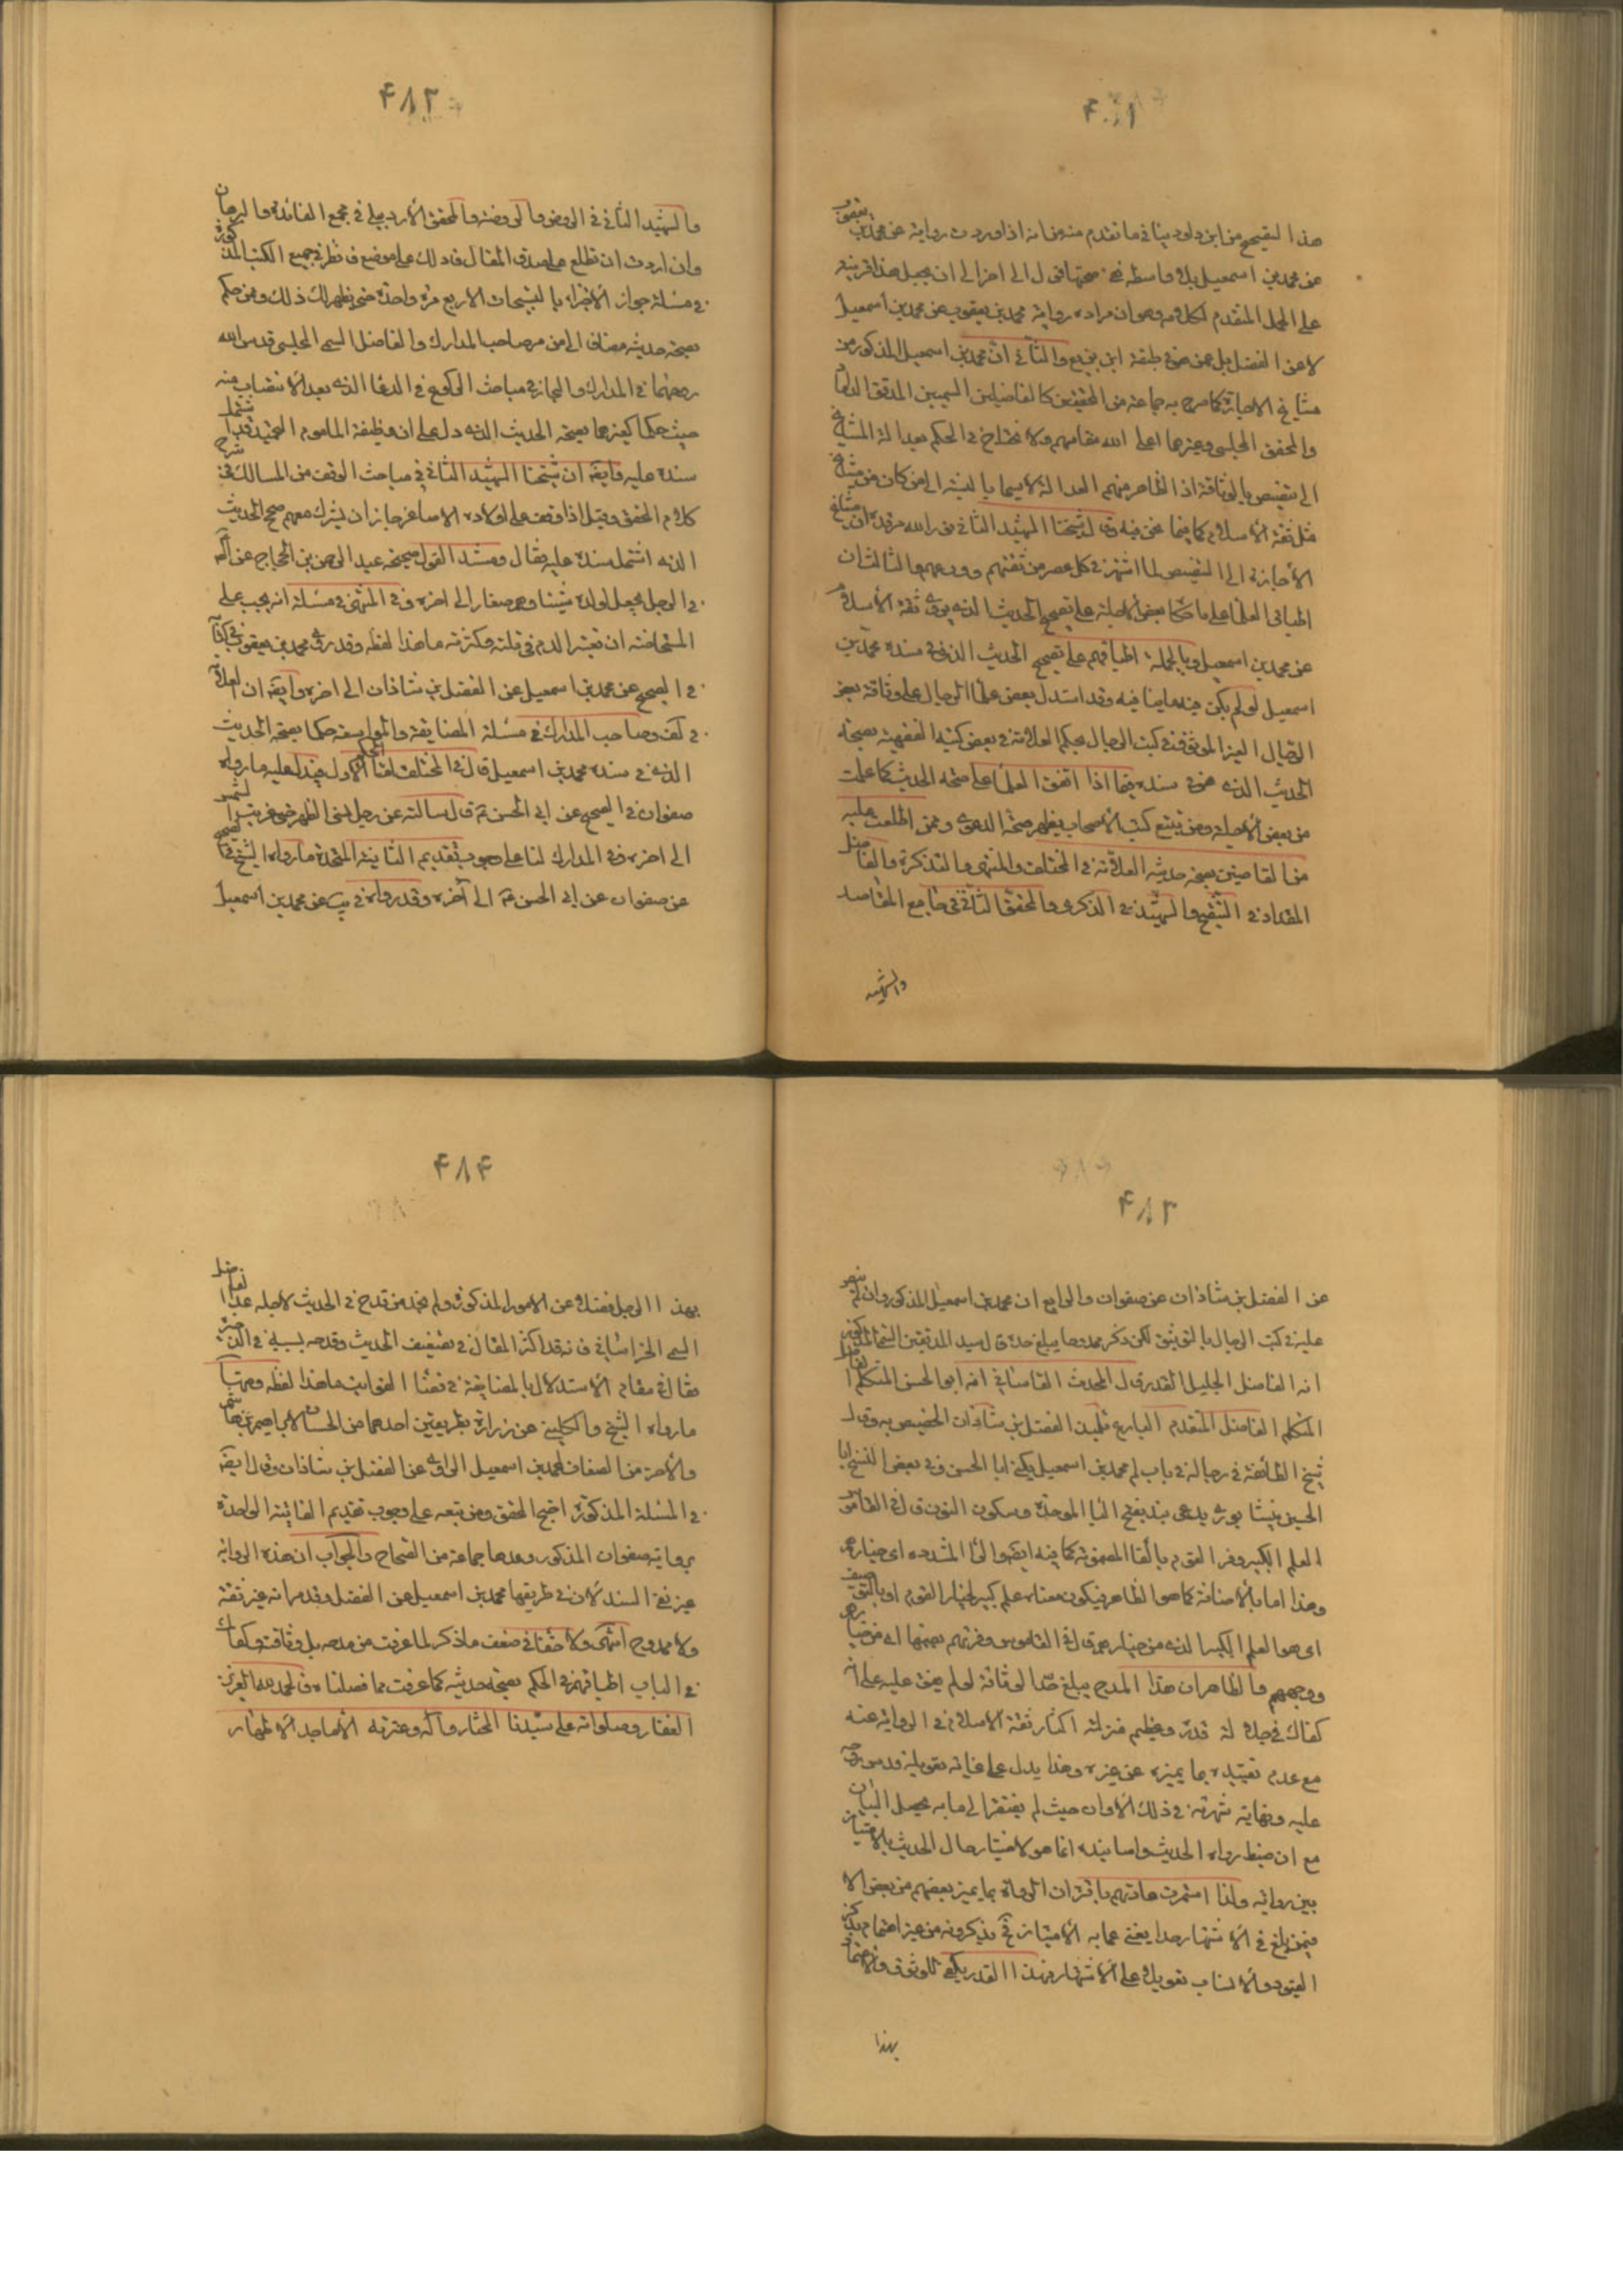 ۴۸۱
هذا التصحيح من ابن داود ينافي ما تقدم منه من انه اذا وردت رواية عن محمد بن يعقوب
عن محمد بن اسمعيل بلا واسطة ففي صحتها قول الى اخره الى ان يجعل هذا قرينة
على الحمل المتقدم لكلامه وهو ان مراده رواية محمد بن يعقوب عن محمد بن اسمعيل
لا عن الفضل بل عن من في طبقة ابن بزيع والثاني ان محمد بن اسمعيل المذكور من
مشايخ الاجازة كما صرح به جماعة من المحققين كالفاضلين السميين المدقق الداماد
والمحقق المجلسي وغيرهما اعلى الله مقامهم ولا نحتاج في الحكم بعدالة المشايخ
الى تنصيص بالوثاقة اذ الظاهر منهم العدالة لا سيما بالنسبة الى من كان من مشايخ
مثل ثقة الاسلام كما فيما نحن فيه وقال شيخنا الشهيد الثاني نور الله مرقده ان مشايخ
الاجازة الى التنصيص لما اشتهر في كل عصر من ثقتهم وورعهم والثالث ان
اطباق العلماء على ما حكاه بعض الاجلة على تصحيح الحديث الذي يروي ثقة الاسلام
عن محمد بن اسمعيل وبالجملة اطباقهم على تصحيح الحديث الذي في سنده محمد بن
اسمعيل لو لم يكن فيه ما ينافيه وقد استدل بعض علماء الرجال على وثاقة بعض
الرجال الغير الموثق في كتب الرجال بحكم العلامة في بعض كتبه الفقهية بصحة
الحديث الذي هو في سنده فيما اذا اتفق العلماء على صحة الحديث كما علمت
من بعض الاجلة ومن تتبع كتب الاصحاب يظهر صحة الدعوى وممن اطلعت عليه
من القاضين بصحة حديثه العلامة في المختلف والمنتهى والتذكرة والفاضل
المقداد في التنقيح والشهيد في الذكرى والمحقق الثاني في جامع المقاصد
والشهيد
۴۸۲
والشهيد الثاني في الروض والروضة والمحقق الاردبيلي في مجمع الفائدة والبرهان
وان اردت ان تطلع على صدق المقال فادلك على موضع فانظر في جميع الكتب المذكورة
في مسئلة جواز الاجتزاء بالتسبيحات الاربع مرة واحدة حتى يظهر لك ذلك وممن حكم
بصحة حديثه مضافا الى من مر صاحب المدارك والفاضل السمي المجلسي قدس الله
روحهما في المدارك والبحار في مباحث الركوع في الدعاء الذي بعد الانتصاب منه
حيث حكما كغيرهما بصحة الحديث الذي دل على ان وظيفة الماموم التحميد وقد اشتمل
سنده عليه وايضا ان شيخنا الشهيد الثاني في مباحث الوقف من المسالك في شرح
كلام المحقق وقيل اذا وقف على اولاده الاصاغر جاز ان يشرك معهم صحح الحديث
الذي اشتمل سنده عليه فقال ومستند القول صحيحة عبد الرحمن بن الحجاج عن
في الرجل يجعل لولده شيئا وهم صغار الى اخره وفي المنتهى في مسئلة انه يجب على
المستحاضة ان تعتبر الدم في قلته وكثرته ما هذا لفظه وقد روى محمد بن يعقوب في كتابه
في الصحيح عن محمد بن اسمعيل عن الفضل بن شاذان الى اخره وايضا ان العلامة
في لف وصاحب المدارك في مسئلة المضايقة والمواسعة حكما بصحة الحديث
الذي في سنده محمد بن اسمعيل قال في المختلف لنا الحكم الاول فيدل عليه ما رواه
صفوان في الصحيح عن ابي الحسن ع قال سالته عن رجل نسي الظهر حتى غربت الشمس
الى اخره وفي المدارك لنا على وجوب تقديم الفائتة المتحدة ما رواه الشيخ في الصحيح
عن صفوان عن ابي الحسن ع الى آخره وقد رواه في يب عن محمد بن اسمعيل
۴۸۳
عن الفضل بن شاذان عن صفوان والرابع ان محمد بن اسمعيل المذكور وان لم ينص
عليه في كتب الرجال بالتوثيق لكن ذكر ممدوحا يبلغ حده قال سيد المدققين السمي المذكور
انه الفاضل الجليل القدر قال المحدث القاساني انه ابو الحسن المتكلم الفاضل
المتكلم الفاضل المتقدم البارع تلميذ الفضل بن شاذان الخصيص به وقال
شيخ الطائفة في رجاله في باب لم محمد بن اسمعيل يكنى ابا الحسن وفي بعض النسخ ابا
الحسين نيشابوري يدعى بندفر بفتح الباء الموحدة وسكون النون قال في القاموس
العلم الكبير وفر القوم بالفاء المضمومة كما فيه ايضا والراء المشددة اي خيارهم
وهذا اما بالاضافة كما هو الظاهر فيكون معناه علم كبير لخيار القوم او بالتوصيف
اي هو العلم الكبير الذي من خيارهم قال في القاموس وفرتهم بضمها اي من خيارهم
ووجههم والظاهر ان هذا المدح يبلغ حد الوثاقة لو لم يفق عليه على انه
كفاك في جلالة قدره وعظيم منزلته اكثار ثقة الاسلام في الرواية عنه
مع عدم تقييده بما يميزه عن غيره وهذا يدل على غاية تعويله قدس روحه
عليه ونهاية شهرته في ذلك الاوان حيث لم يفتقر الى ما به يحصل البيان
مع ان ضبط رواة الحديث واسانيده انما هو لاختبار حال الحديث بالامتياز
بين رواته ولذا استمرت عادتهم باقتران الرواة بما يميز بعضهم من بعض الا
فيمن بلغ في الاشتهار حدا يغني عما به الامتياز فح يذكرونه من غير اهتمام بذكر
القيود والانساب تعويلا على الاشتهار فهذا القدر يكفي للوثوق والاعتماد
بهذا
۴۸۴
بهذا الرجل فضلا عن الامور المذكورة ولم نجد من قدح في الحديث لاجله عدا الفاضل
السمي الخراساني فانه قد اكثر المقال في تضعيف الحديث وقدحه بسببه في الذخيرة
فقال في مقام الاستدلال بالمضايقة في قضاء الفوايت ما هذا لفظه ومنها
ما رواه الشيخ والكليني عن زرارة بطريقين احدهما من الحسان لابراهيم بن هاشم
والاخر من الضعاف لمحمد بن اسمعيل الراوي عن الفضل بن شاذان وقال ايضا
في المسئلة المذكورة احتج المحقق ومن تبعه على وجوب تقديم الفائتة الواحدة
برواية صفوان المذكور وعدها جماعة من الصحاح والجواب ان هذه الرواية
غير نقي السند لان في طريقها محمد بن اسمعيل عن الفضل وقد مر انه غير ثقة
ولا ممدوح انتهى ولا خفاء في ضعف ما ذكر لما عرفت من مدحه بل وثاقته وكفاك
في الباب اطباقهم في الحكم بصحة حديثه كما عرفت مما فصلناه فالحمد لله العزيز
الغفار وصلواته على سيدنا المختار وآله وعترته الاماجد الاطهار